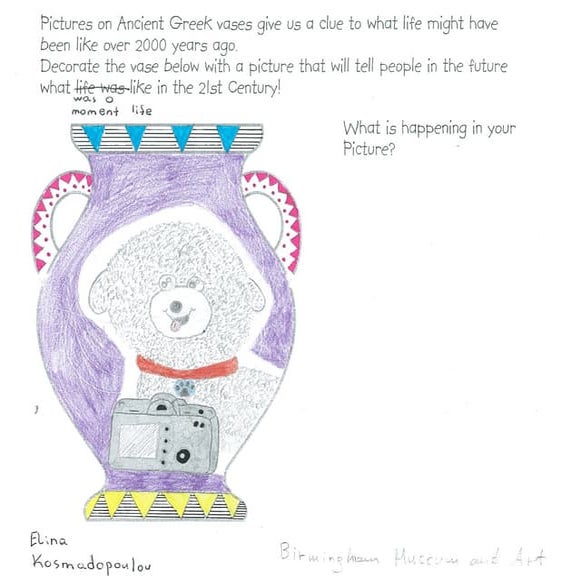 Pictures on Ancient Greek vases give us a clue to what life might have
been like over 2000 years ago.
Decorate the vase below with a picture that will tell people in the future
what life was like in the 21st Century!
was a
moment life
What is happening in your
Picture?
Elina
Kosmadopoulou
Birmingham Museum and Art